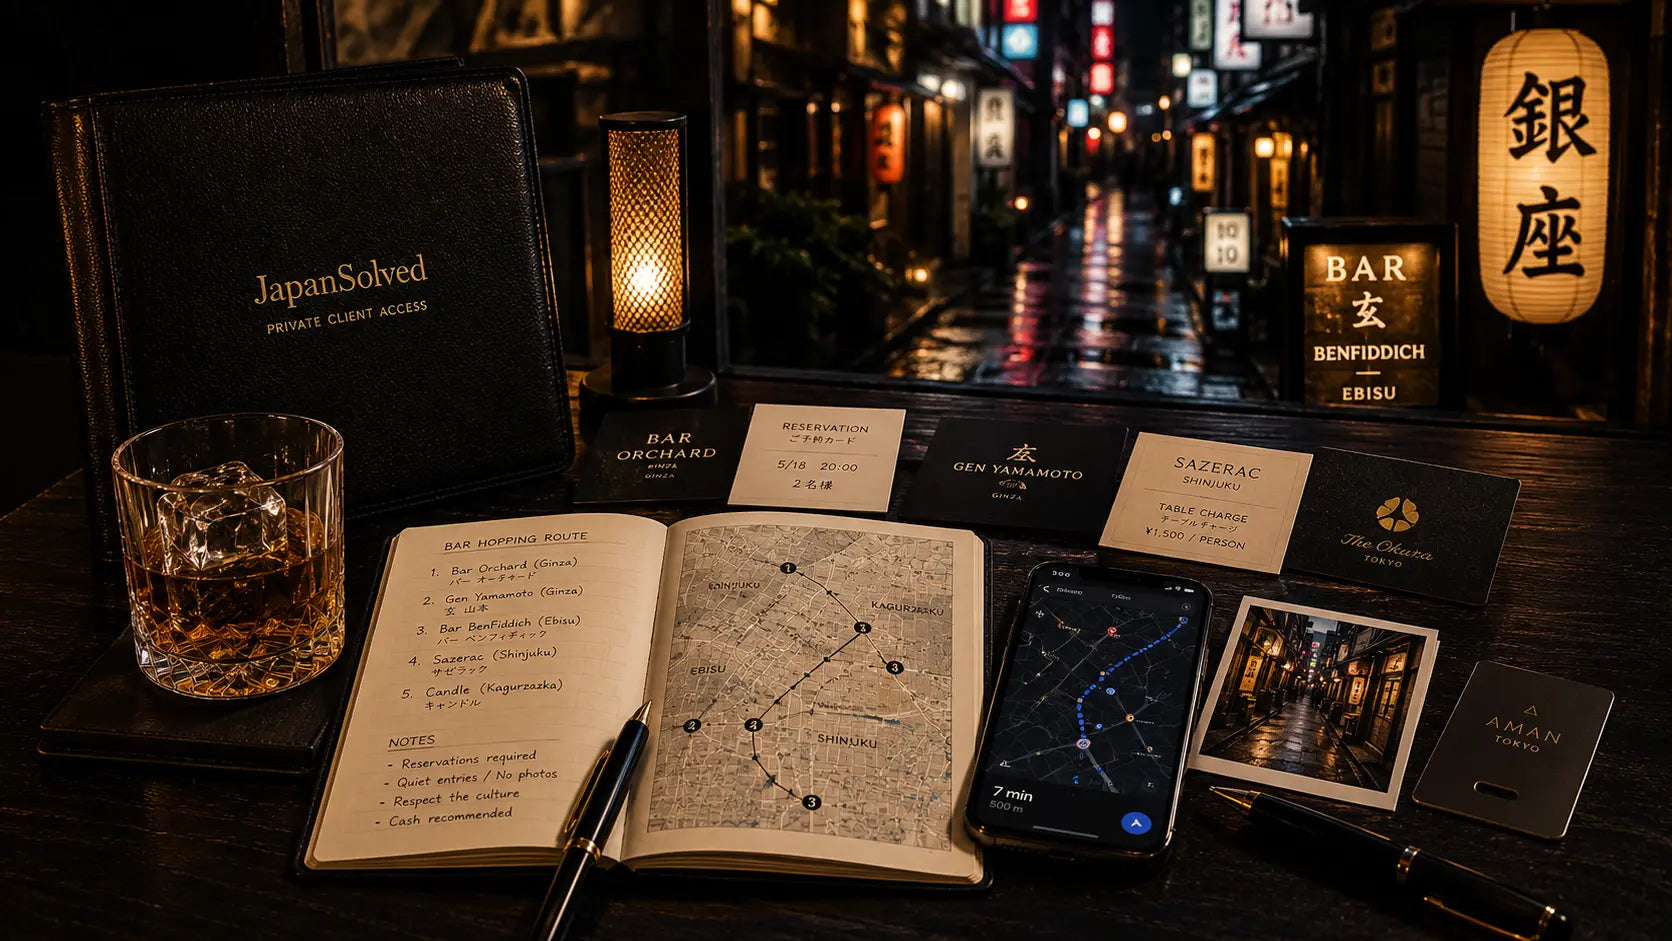 JapanSolved
PRIVATE CLIENT ACCESS
銀座
BAR
玄
BENFIDDICH
EBISU
10
10
BAR
ORCHARD
GINZA
GINZA
RESERVATION
ご予約カード
5/18 20:00
2名様
GEN YAMAMOTO
GINZA
SAZERAC
SHINJUKU
TABLE CHARGE
テーブルチャージ
¥1,500 / PERSON
The Okura
TOKYO
BAR HOPPING ROUTE
1. Bar Orchard (Ginza)
バー オーチャード
2. Gen Yamamoto (Ginza)
玄 山本
3. Bar BenFiddich (Ebisu)
バー ベンフィディック
4. Sazerac (Shinjuku)
サゼラック
5. Candle (Kagurzazka)
キャンドル
NOTES
- Reservations required
- Quiet entries / No photos
- Respect the culture
- Cash recommended
KAGURZAKU
EBISU
SHINJUKU
1
3
3
2
2
3
7 min
500 m
AMAN
TOKYO